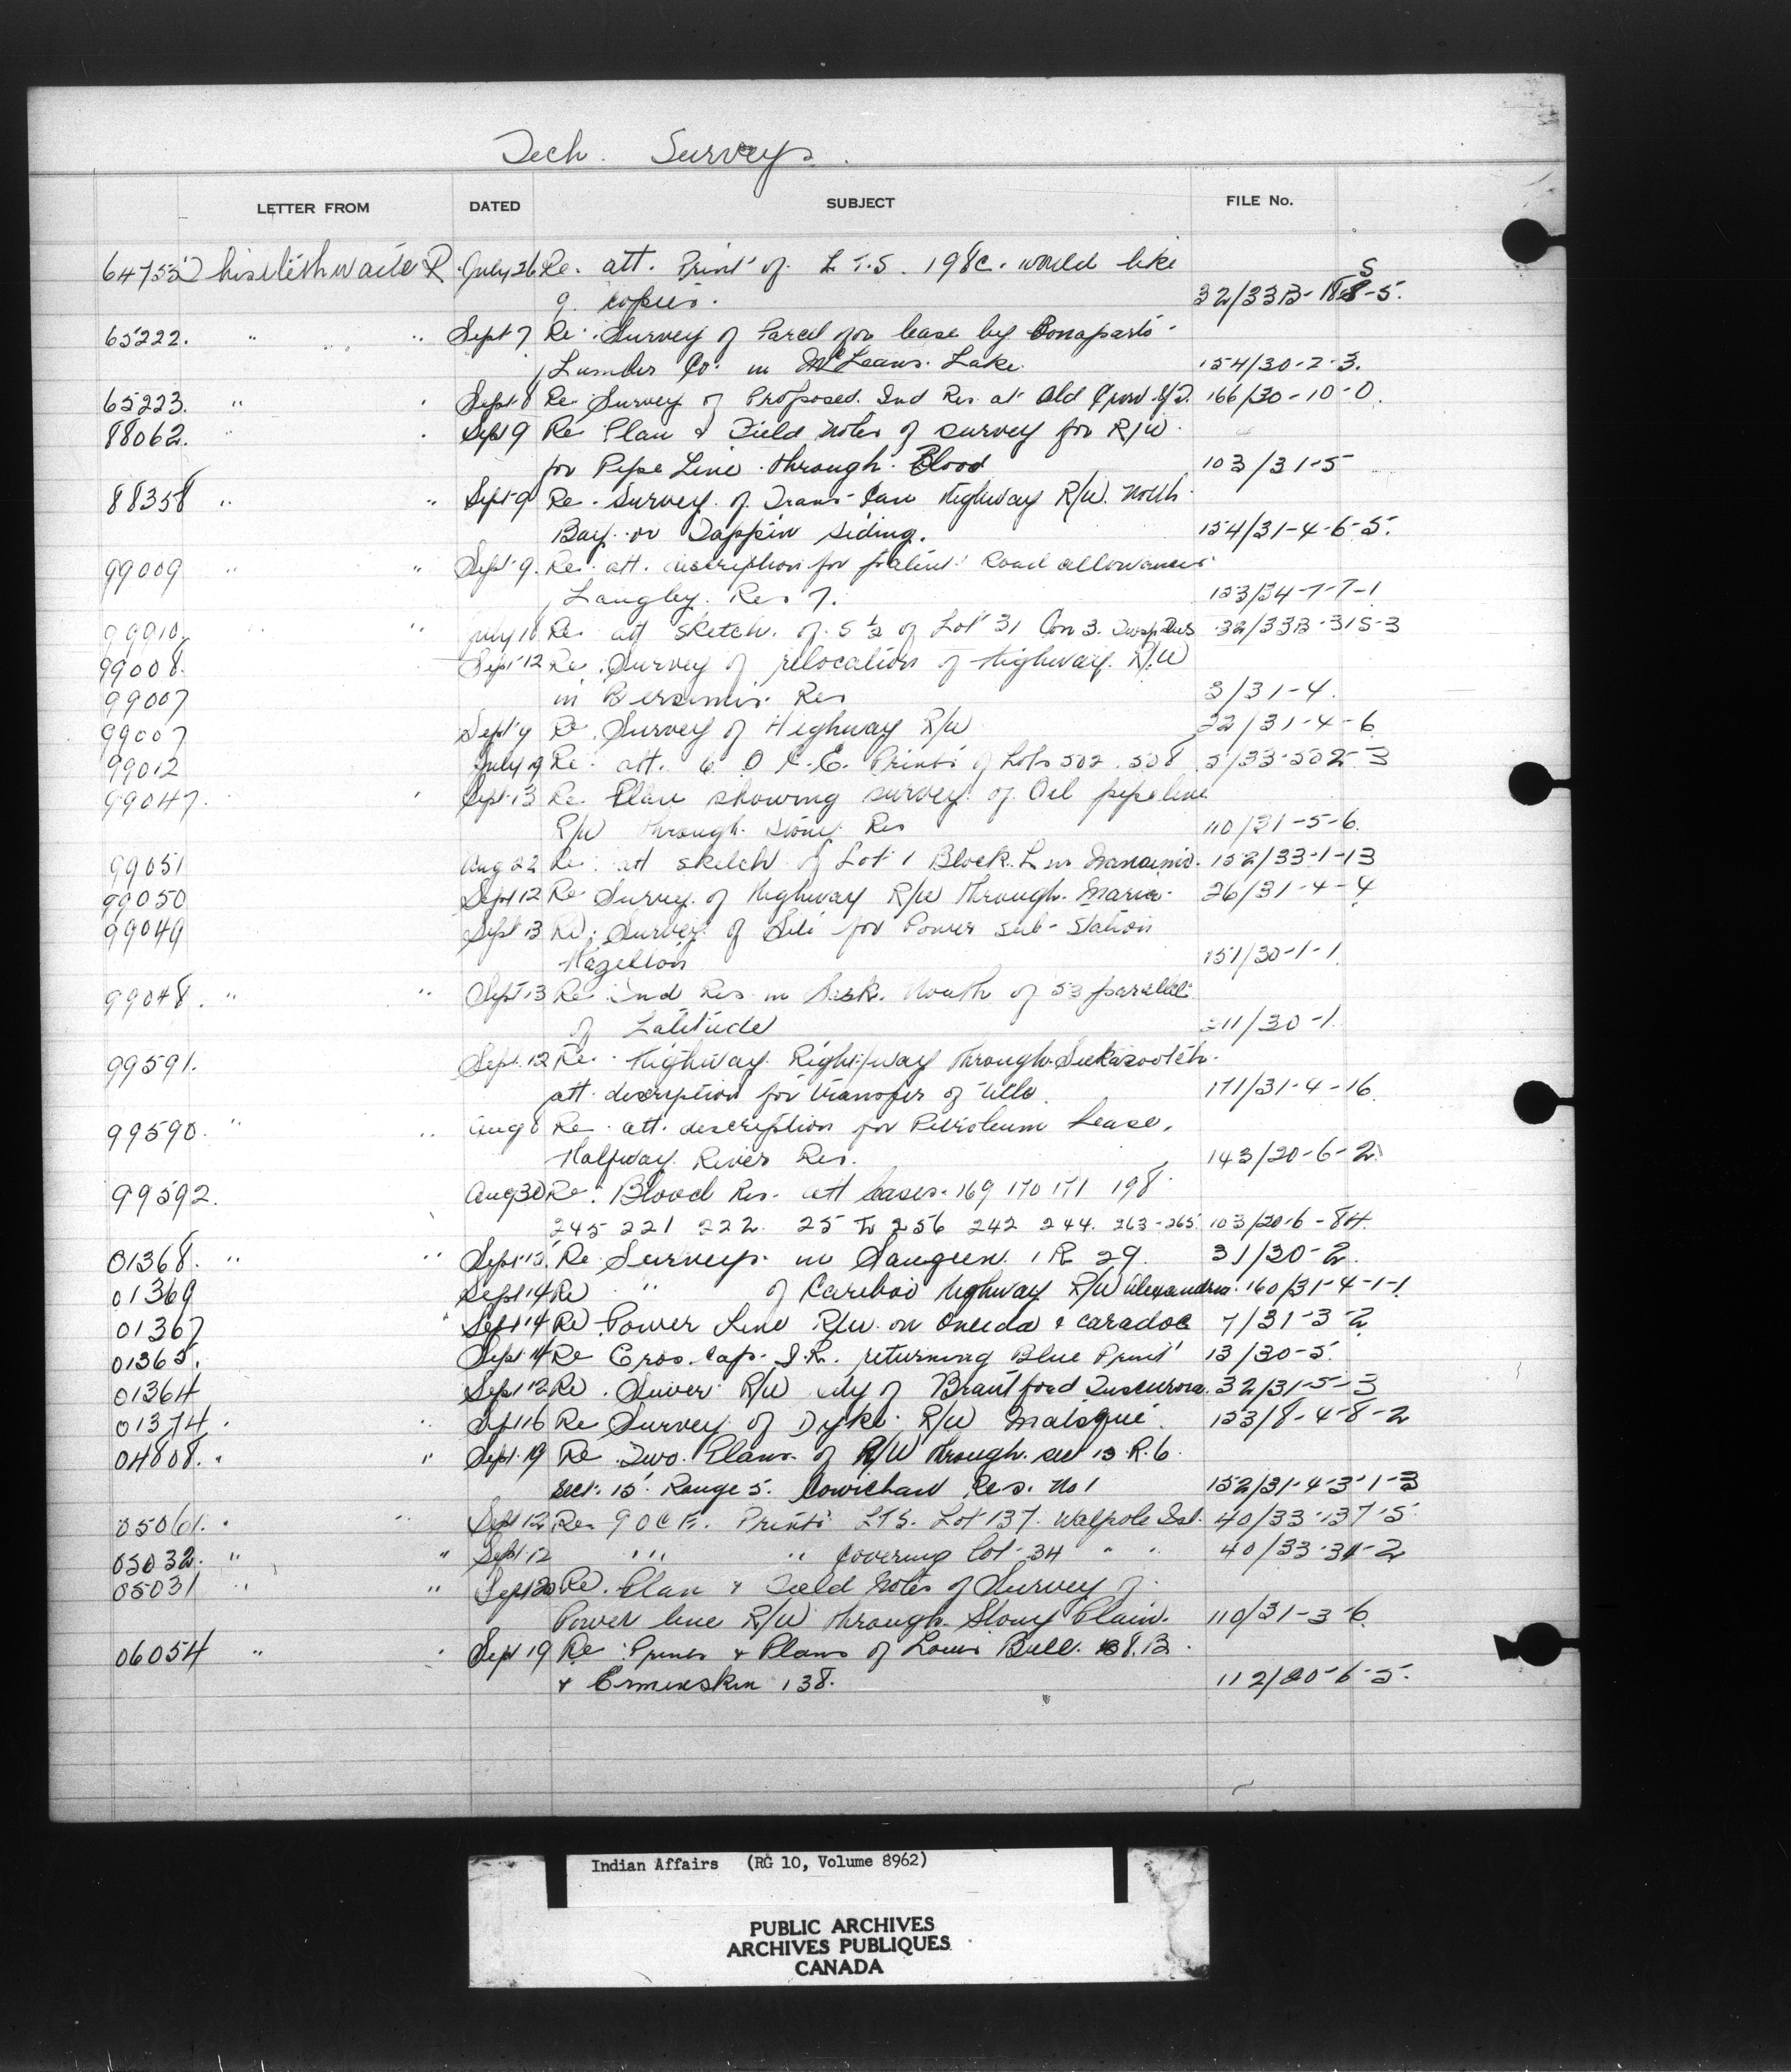 Tech. Surveys.
LETTER FROM DATED SUBJECT FILE No.
July 26 Re. att. Print of L.T.S. 198c. would like
9 copies. 32/33B-188-5. S
65222. " " Sept 7 Re. Survey of Parcel for lease by Bonaparte
Lumber Co. in McLeans Lake. 154/30-2-3.
65223. " " Sept 8 Re Survey of Proposed Ind Res at Old Crow Y.T. 166/30-10-0.
88062. " " Sept 9 Re Plan & Field notes of survey for R/W
for Pipe Line through Blood 103/31-5
88358 " " Sept 9 Re. Survey of Trans-Can Highway R/W. North
Bay or Tappin siding. 154/31-4-6-5.
99009 " " Sept 9. Re. att. description for patent Road allowances
Langley Res 7. 153/34-7-7-1
99010 " " July 18 Re att sketch of S ½ of Lot 31 Con 3. 32/33B-31S-3
99008. Sept 12 Re. Survey of relocation of Highway R/W
99007 in Bersimis Res 3/31-4.
99007 Sept 9 Re Survey of Highway R/W 22/31-4-6
99012 July 19 Re. att. 6 O.C.E. Prints of Lots 502. 508 5/33-502-3
99047. Sept 13 Re Plan showing survey of Oil pipeline
R/W through Stony Res 110/31-5-6.
99051 Aug 22 Re. att sketch of Lot 1 Block L in Nanaimo. 152/33-1-13
99050 Sept 12 Re Survey of Highway R/W through Maria. 26/31-4-4
99049 Sept 13 Re. Survey of Site for Power sub-station
Hazelton 151/30-1-1
99048. " " Sept 13 Re Ind Res in Sask. North of 53 parallel
of Latitude /30-1.
99591. Sept. 12 Re. Highway Right/way through
att. description for transfer of title. 171/31-4-16.
99590. " " Aug 8 Re. att. description for Petroleum Lease,
Halfway River Res. 143/20-6-2
99592. Aug 30 Re. Blood Res. att leases. 169 170 171 198
245 221 222. 25 to 256 242 244. 263-265. 103/20-6-84.
01368. " " Sept 13. Re Surveys in Saugeen I R 29. 31/30-2.
01369 Sept 14 Re " of Cariboo Highway R/W Alexandria. 160/31-4-1-1.
01367 " Sept 14 Re Power Line R/W on Oneida & Caradoc 7/31-3-2
01365. Sept 14 Re Gros. Cap. I.R. returning Blue Print 13/30-5.
01364 Sept 12 Re. Sewer R/W City of Brantford Tuscarora. 32/31-5-3
01374. " Sept 16 Re Survey of Dyke R/W Matsqui. 153/8-4-8-2
04808. " " Sept. 19 Re Two Plans of R/W through. sec 13 R. 6.
sect. 15 Range 5. Cowichan Res. No 1 152/31-4-3-1-3
05061. " " Sept 12 Re. 9 O C E. Prints L T S. Lot 137. Walpole Isl. 40/33-137-5
05032. " " Sept. 12 " " covering lot 34 " " 40/33-34-2
05031 " " Sept 20 Re. Plan & Field Notes of Survey of
Power line R/W through Stony Plain. 110/31-3-6.
06054 " " Sept 19 Re Prints & Plans of Louis Bull 138.B
& Ermineskin 138. 112/20-6-5.
Indian Affairs (RG 10, Volume 8962)
PUBLIC ARCHIVES
ARCHIVES PUBLIQUES
CANADA